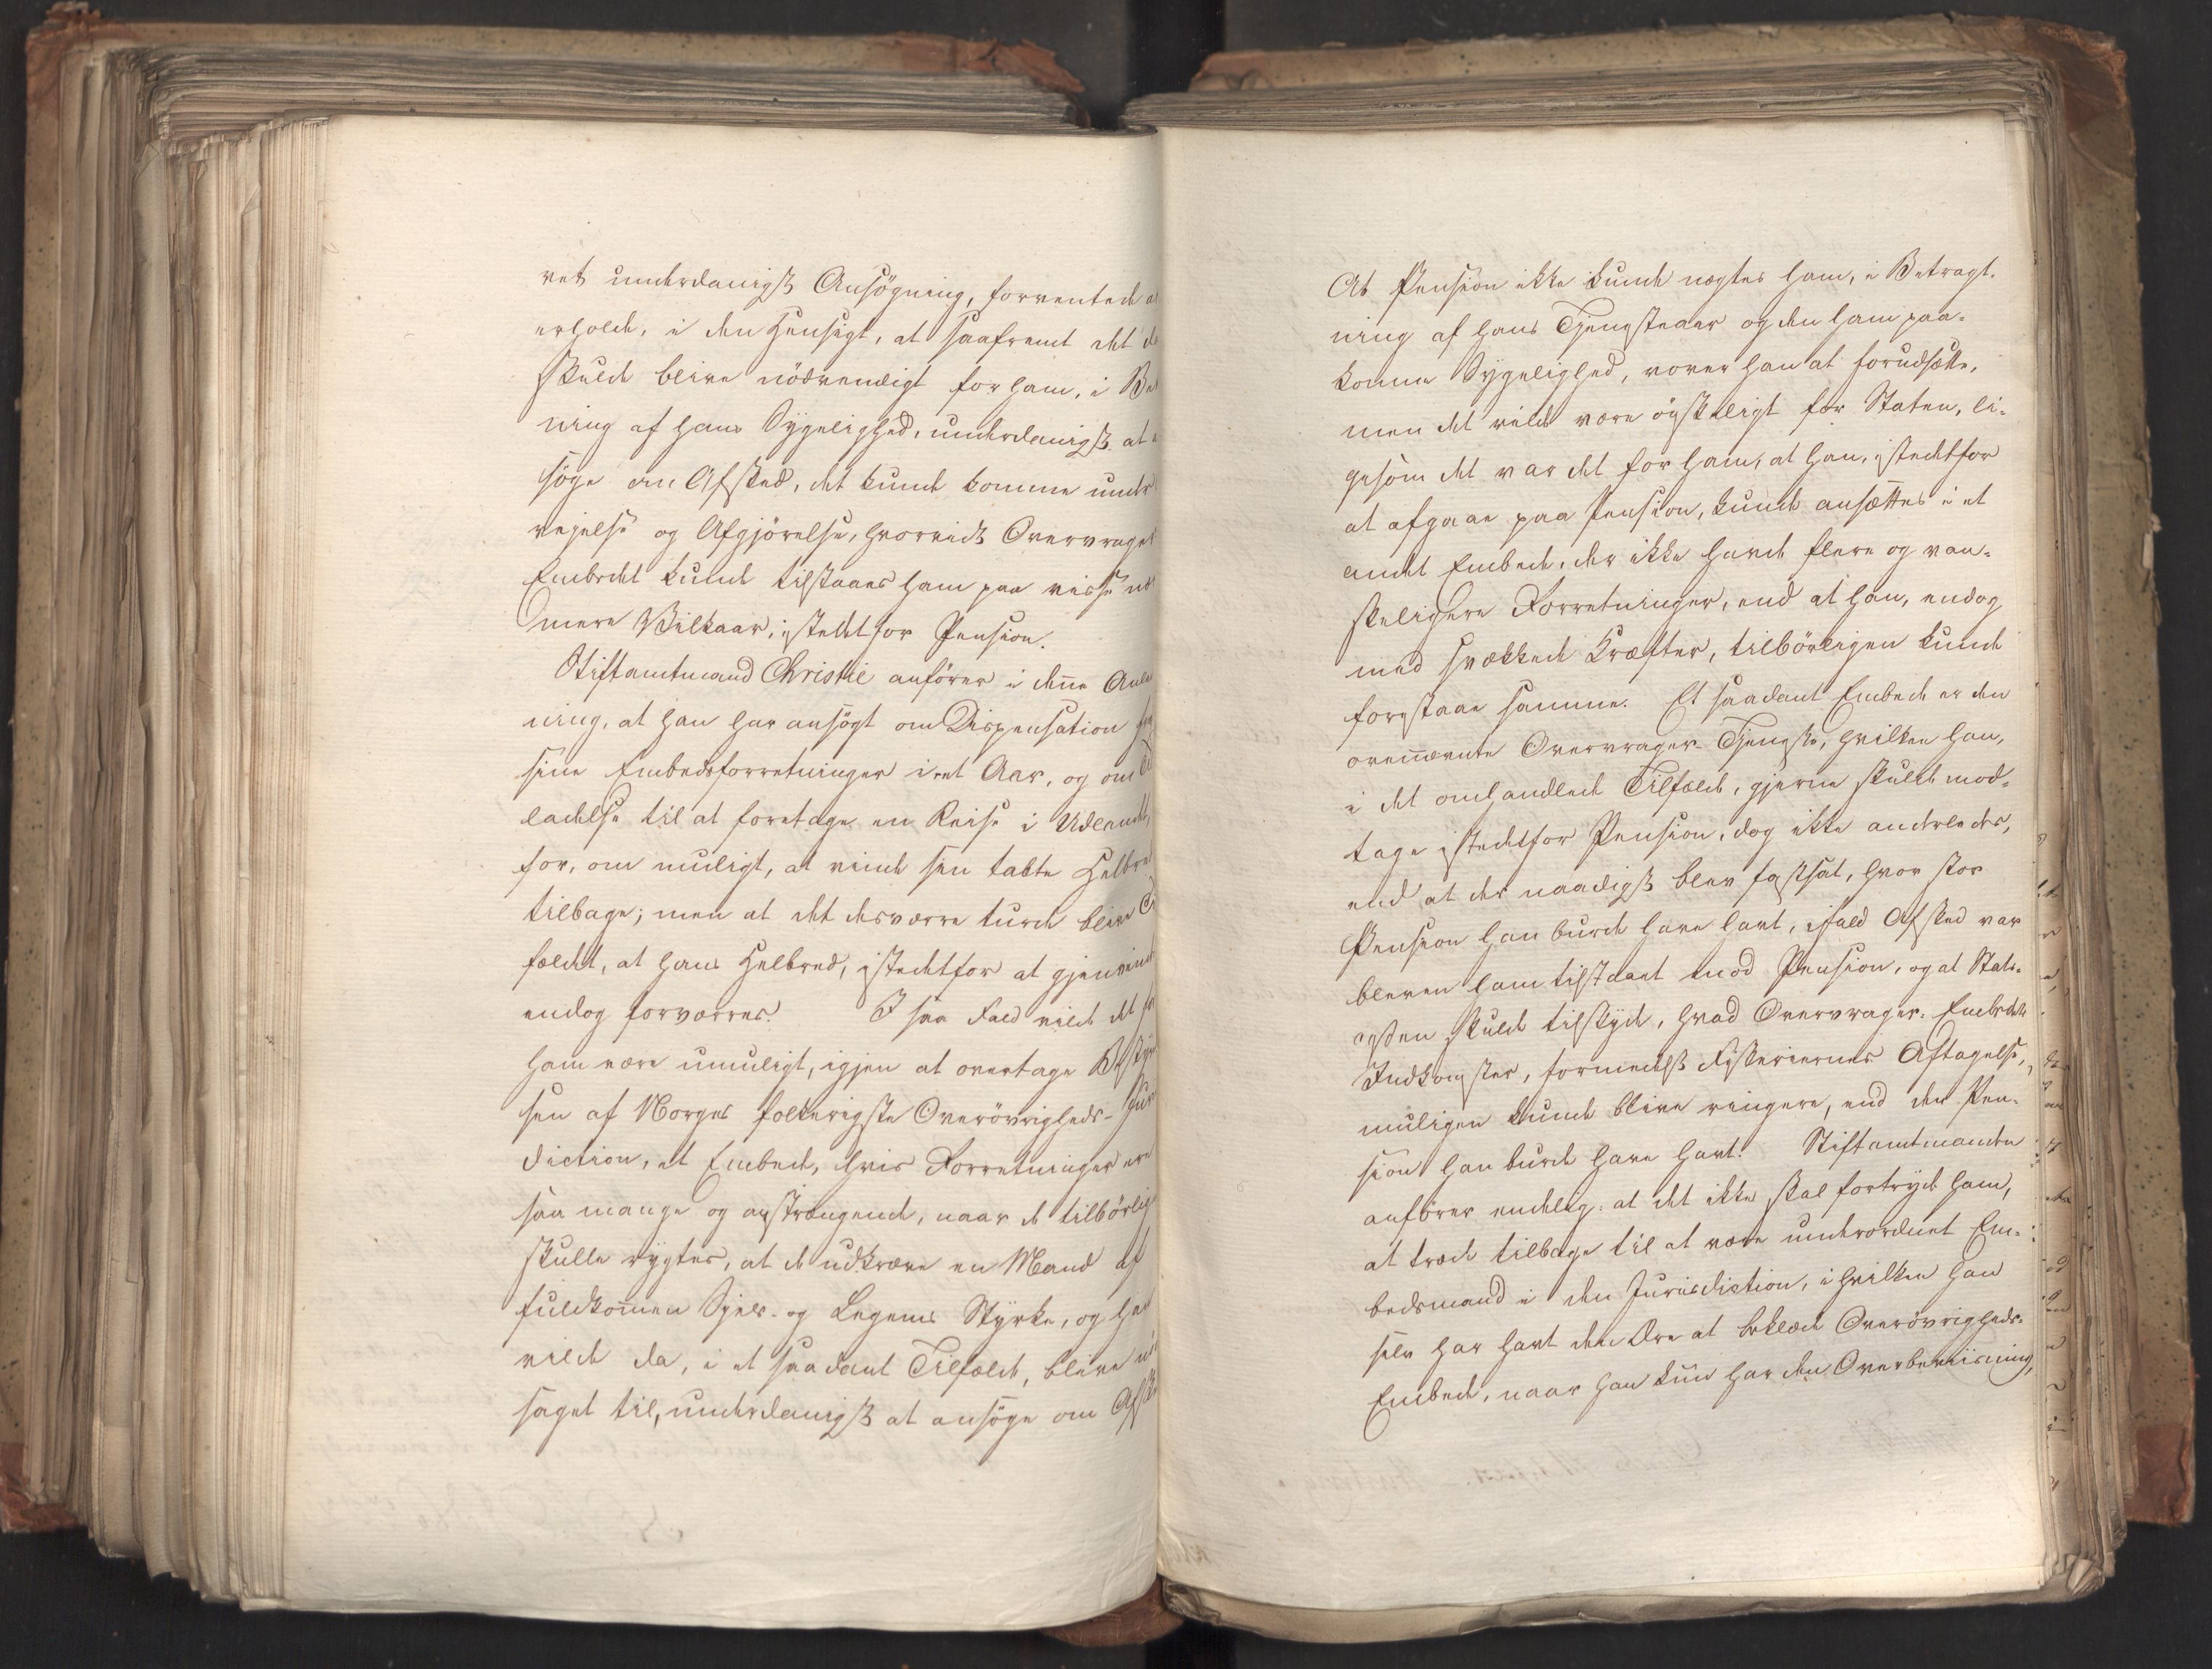 ret underdanigst Ansögning, forventede a
erholde, i den Hensigt, at saafremt det d
skulde blive nödvendigt for ham, i Be
ning af hans Sygelighed, underdanigst at
söge om Afsked, det kunde komme under
vejelse og Afgjörelse, hvorvidt Overvrager
Embedet kunde tilstaaes ham paa visse næ
mere Vilkaar, istedetfor Pension.
Stiftamtmand Christie anförer i denne Anle
ning, at han har ansögt om Dispensation fra
sine Embedsforretninger i et Aar, og om Til
ladelse til at foretage en Reise i Udlandet,
for, om muligt, at vinde sin tabte Helbred
tilbage; men at det desværre turde blive Til
fældet, at hans Helbred, istedetfor at gjenvindes
endog forværres. I saa Fald vilde det for
ham være umuligt, igjen at overtage Bestyrel
sen af Norges folkerigste Overövrigheds- Juris
diction, et Embede, hvis Forretninger ere
saa mange og anstrængende, naar de tilbörlig
skulle rygtes, at de udkræve en Mand af
fuldkommen Sjels- og Legems Styrke, og han
vilde da, i et saadant Tilfælde, blive nö
saget til, underdanigst at ansöge om Afsked
At Pension ikke kunde nægtes ham, i Betragt-
ning af hans Tjenesteaar og den ham paa-
komne Sygelighed, vover han at forudsætte,
men det vilde være önskeligt for Staten, li-
gesom det var det for ham, at han, istedetfor
at afgaae paa Pension, kunde ansættes i et
andet Embede, der ikke havde flere og van-
skeligere Forretninger, end at han, endog
med svækkede Kræfter, tilbörligen kunde
forestaae samme. Et saadant Embede er den
ovennævnte Overvrager-Tjeneste, hvilken han,
i det omhandlede Tilfælde, gjerne skulde mod-
tage istedetfor Pension, dog ikke anderledes,
end at der naadigst blev fastsat, hvor stor
Pension han burde have havt, ifald Afsked var
bleven ham tilstaaet med Pension, og at Stats-
cassen skulde tilskyde, hvad Overvrager-Embedets
Indkomster, formedelst Fiskeriernes Aftagelse,
muligen kunde blive ringere, end den Pen-
sion han burde have havt. Stiftamtmanden
anförer endelig: at det ikke skal fortryde ham,
at træde tilbage til at være underordnet Em-
bedsmand i den Jurisdiction, i hvilken han
selv har havt den Ære at beklæde Overövrigheds-
Embede, naar han kun har den Overbeviisning,